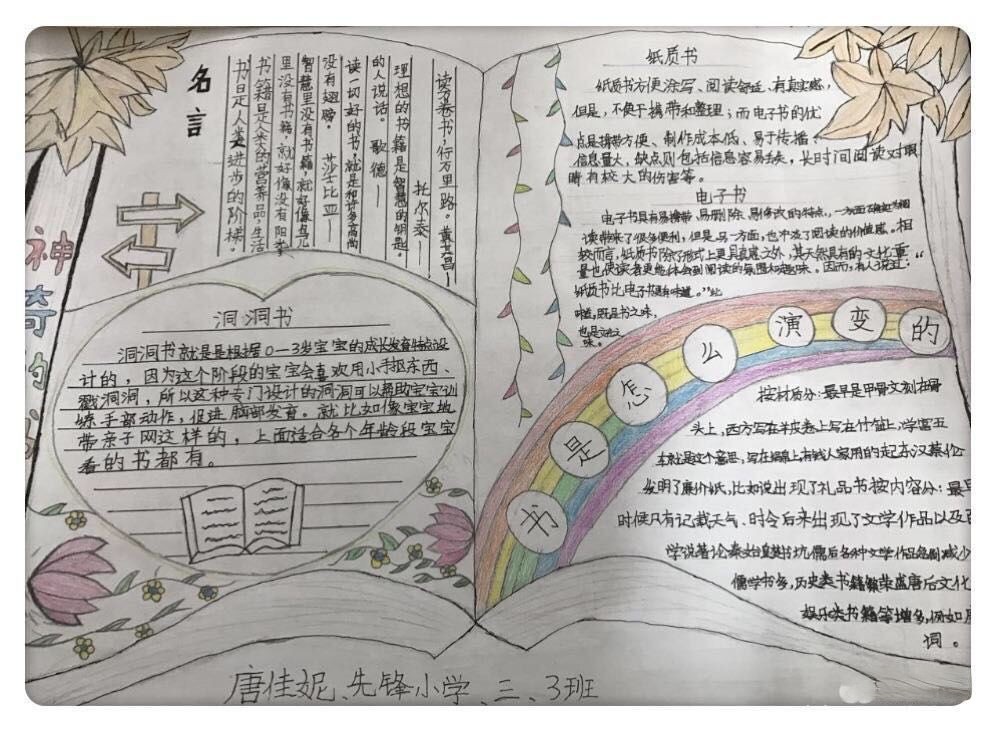 神奇的
名言
书籍是人类进步的阶梯。
书籍是人类的营养品,生活
里没有书籍,就好像没有阳光
智慧里没有书籍,就好像鸟儿
没有翅膀。 莎士比亚——
读一切好的书,就是和许多高尚
的人说话。 歌德——
理想的书籍是智慧的钥匙。
托尔泰——
读万卷书,行万里路。 黄其昌——
洞洞书
洞洞书就是是根据0—3岁宝宝的成长发育特点设
计的,因为这个阶段的宝宝会喜欢用小手抠东西、
戳洞洞,所以这种专门设计的洞洞可以帮助宝宝训
练手部动作,促进脑部发育。就比如像宝宝地
带亲子网这样的,上面适合各个年龄段宝宝
看的书都有。
纸质书
纸质书方便涂写、阅读舒适、有真实感,
但是,不便于携带和整理;而电子书的优
点是携带方便、制作成本低、易于传播,
信息量大,缺点则包括信息容易丢失,长时间阅读对眼
睛有较大的伤害等。
电子书
电子书具有易携带、易删除、易修改的特点,一方面
读带来了很多便利,但是另一方面,也冲淡了阅读的价值感。相
较而言,纸质书除了形式上更具真意之外,其天然具有的文化重
量也使读者更能体会到阅读的氛围和趣味。因而,有人说过:“
纸质书比电子书更有味道。”
味道,既是书之味,
也是文化之
味。
书是怎么演变的
按材质分:最早是甲骨文刻在骨
头上,西方写在羊皮卷上写在竹简上,学富五
车就是这个意思,写在绢帛上有钱人家用的起东汉蔡伦
发明了廉价纸,比如说出现了礼品书按内容分:最早
时候只有记载天气、时令后来出现了文学作品以及
学说著论秦始皇焚书坑儒后各种文学作品名剧减少
儒学书多,历史类书籍繁荣盛唐后文化
娱乐类书籍等增多,例如
词。
唐佳妮、先锋小学、三、3班